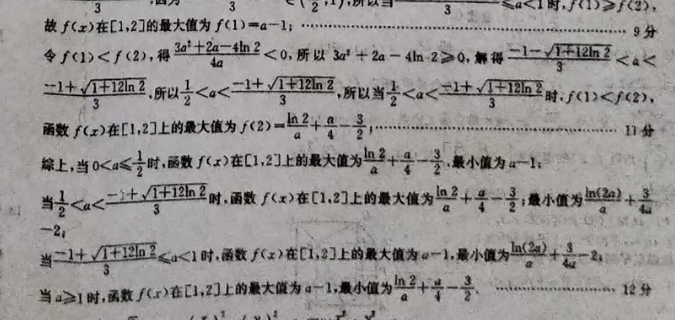 3 ≤a<1时,f(1)≥f(2),
故 f(x)在[1,2]的最大值为 f(1)=a-1; …… 9 分
令 f(1)<f(2),得 (3a²+2a-4ln 2)/4a <0,所以 3a²+2a-4ln 2≥0,解得 (-1-√(1+12ln 2))/3 <a<
(-1+√(1+12ln 2))/3,所以 1/2<a<(-1+√(1+12ln 2))/3,所以当 1/2<a<(-1+√(1+12ln 2))/3 时,f(1)<f(2),
函数 f(x)在[1,2]上的最大值为 f(2)=ln 2/a+a/4-3/2; …… 11 分
综上,当 0<a≤1/2 时,函数 f(x)在[1,2]上的最大值为 ln 2/a+a/4-3/2,最小值为 a-1;
当 1/2<a<(-1+√(1+12ln 2))/3 时,函数 f(x)在[1,2]上的最大值为 ln 2/a+a/4-3/2;最小值为 ln(2a)/a+3/4a
-2;
当 (-1+√(1+12ln 2))/3≤a<1 时,函数 f(x)在[1,2]上的最大值为 a-1,最小值为 ln(2a)/a+3/4a-2;
当 a≥1 时,函数 f(x)在[1,2]上的最大值为 a-1,最小值为 ln 2/a+a/4-3/2. …… 12 分